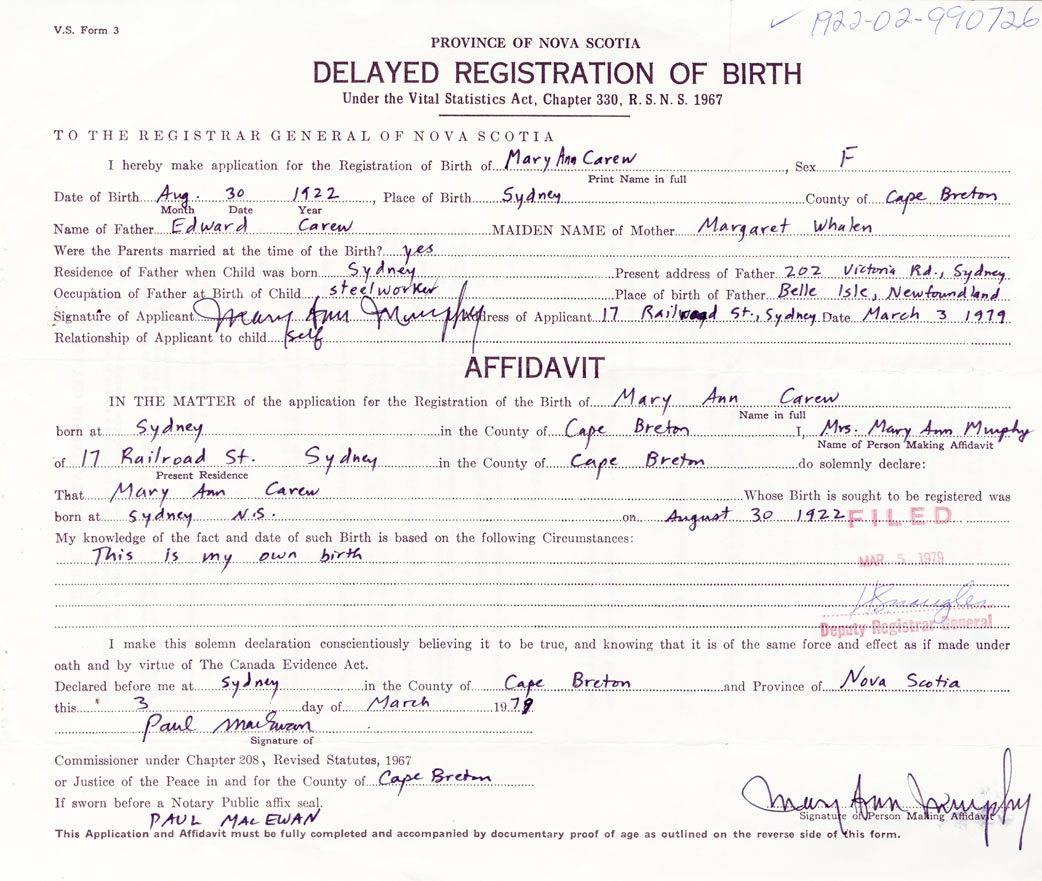 V.S. Form 3
✓ 1922-02-990726
PROVINCE OF NOVA SCOTIA
DELAYED REGISTRATION OF BIRTH
Under the Vital Statistics Act, Chapter 330, R. S. N. S. 1967
TO THE REGISTRAR GENERAL OF NOVA SCOTIA
I hereby make application for the Registration of Birth of Mary Ann Carew, Sex F
Print Name in full
Date of Birth Aug. 30 1922, Place of Birth Sydney County of Cape Breton
Month Date Year
Name of Father Edward Carew MAIDEN NAME of Mother Margaret Whalen
Were the Parents married at the time of the Birth? yes
Residence of Father when Child was born Sydney Present address of Father 202 Victoria Rd., Sydney
Occupation of Father at Birth of Child steelworker Place of birth of Father Belle Isle, Newfoundland
Signature of Applicant Mary Ann Murphy Address of Applicant 17 Railroad St., Sydney Date March 3 1979
Relationship of Applicant to child self
AFFIDAVIT
IN THE MATTER of the application for the Registration of the Birth of Mary Ann Carew
Name in full
born at Sydney in the County of Cape Breton I, Mrs. Mary Ann Murphy
Name of Person Making Affidavit
of 17 Railroad St. Sydney in the County of Cape Breton do solemnly declare:
Present Residence
That Mary Ann Carew Whose Birth is sought to be registered was
born at Sydney N.S. on August 30 1922
FILED
My knowledge of the fact and date of such Birth is based on the following Circumstances:
This is my own birth
MAR 5 1979
Deputy Registrar General
I make this solemn declaration conscientiously believing it to be true, and knowing that it is of the same force and effect as if made under
oath and by virtue of The Canada Evidence Act.
Declared before me at Sydney in the County of Cape Breton and Province of Nova Scotia
this 3 day of March 1979
Paul MacEwan
Signature of
Commissioner under Chapter 208, Revised Statutes, 1967
or Justice of the Peace in and for the County of Cape Breton
If sworn before a Notary Public affix seal.
PAUL MACEWAN
Mary Ann Murphy
Signature of Person Making Affidavit
This Application and Affidavit must be fully completed and accompanied by documentary proof of age as outlined on the reverse side of this form.